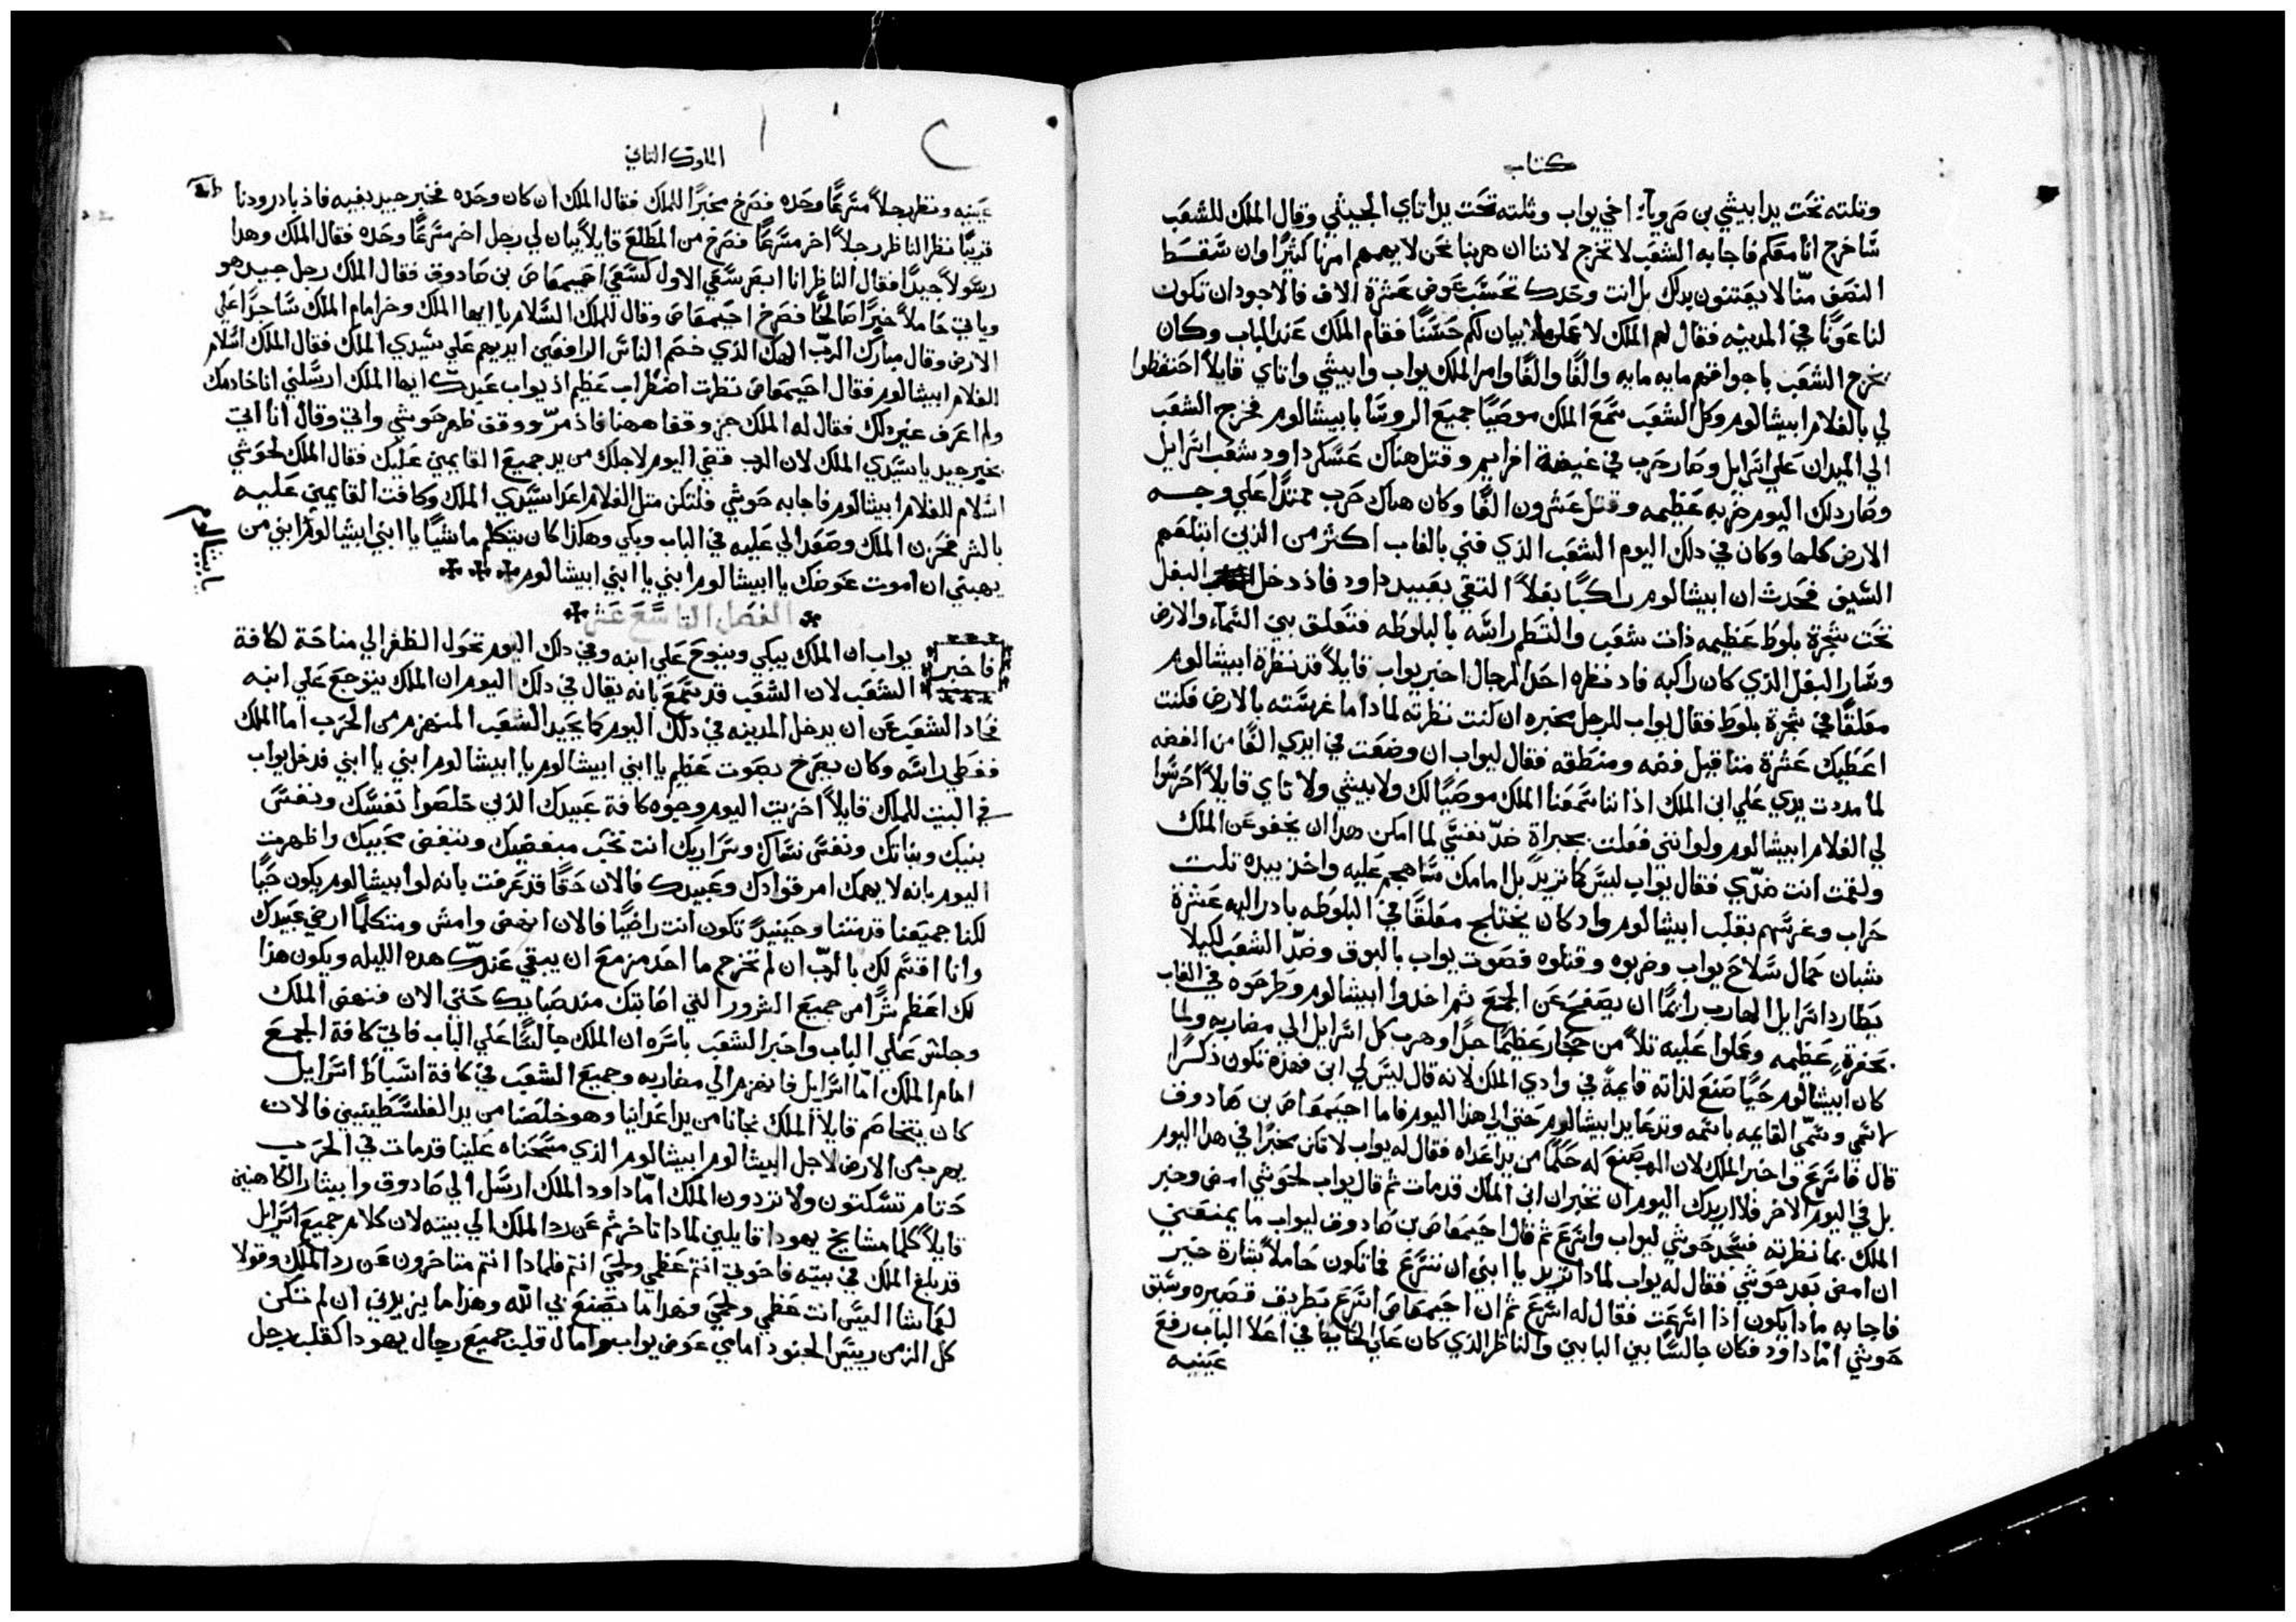 كتاب
وتلته تحت يد ابيشي بن صرويا اخي يواب وثلته تحت يد اتاي الجيثي وقال الملك للشعب
ساخرج انا معكم فاجابه الشعب لا تخرج لاننا ان هربنا نحن لا يهمهم امرنا كثيرًا وان سقط
النصف منّا لا يعتنون بدلك بل انت وحدك تحسب عوض عشرة الاف فالاجود ان تكون
لنا عونًا في المدينه فقال لهم الملك لاعملن ما بيان لكم حسنًا فقام الملك عند الباب وكان
يخرج الشعب باجواقهم مايه مايه والفًا والفًا وامر الملك يواب وابيشي واتاي قايلاً احتفظوا
لي بالغلام ابيشالوم وكل الشعب سمع الملك موصيًا جميع الروسا بابيشالوم فخرج الشعب
الي الميدان علي اسرايل وصار حرب في غيضة افرايم وقتل هناك عسكر داود شعب اسرايل
وصار دلك اليوم ضربه عظيمه وقتل عشرون الفًا وكان هناك حرب ممتدًا علي وجه
الارض كلها وكان في دلك اليوم الشعب الذي فني بالغاب اكثر من الذين ابتلعهم
السيف فحدث ان ابيشالوم راكبًا بغلاً التقي بعبيد داود فاذ دخل البغل
تحت شجرة بلوط عظيمه ذات شعب والتطم راسه بالبلوطه فتعلق بين السماء والارض
وسار البغل الذي كان راكبه فاد نظره احد الرجال اخبر يواب قايلاً قد نظرة ابيشالوم
معلقًا في شجرة بلوط فقال يواب للرجل مخبره ان كنت نظرته لمادا ما غرسته بالارض فكنت
اعطيك عشرة مثاقيل فضه ومنطقه فقال ليواب ان وضعت في ايدي الفًا من الفضه
لما مددت يدي علي ابن الملك اذ اننا سمعنا الملك موصيًا لك ولابيشي ولاتاي قايلاً احرسوا
لي الغلام ابيشالوم ولو انني فعلت بجراة ضدّ نفسي لما امكن هدا ان يخفو عن الملك
ولقمت انت ضدّي فقال يواب ليس كما تريدً بل امامك ساهجم عليه واخذ بيده تلت
حراب وغرسهم بقلب ابيشالوم واد كان يختلج معلقًا في البلوطه بادر اليه عشرة
شبان حمال سلاح يواب وضربوه وقتلوه فصوت يواب بالبوق وضدّ الشعب لكيلا
يطارد اسرايل الهارب رايمًا ان يصفح عن الجمع ثم اخدوا ابيشالوم وطرحوه في الغاب
بحفرةٍ عظيمه وعملوا عليه تلاً من حجار عظيمًا جدًا وهرب كل اسرايل الي مضاربه ولما
كان ابيشالوم حيًا صنع لذاته قايمةً في وادي الملك لانه قال ليس لي ابن فهذه تكون ذكرًا
لاسمي وسمّي القايمه باسمه وتدعا يد ابيشالوم حتي الي هذا اليوم فاما احيمعاص بن صادوف
قال فاسرع واخبر الملك لان الرب صنع له حكمًا من يد اعداه فقال له يواب لا تكن مخبرًا في هدا اليوم
بل في اليوم الاخر فلا اريدك اليوم ان تخبر ان ابن الملك قد مات ثم قال يواب لحوشي امض وخبر
الملك بما نظرته فسجد حوشي ليواب واسرع ثم قال احيمعاص بن صادوف ليواب ما يمنعني
ان امض بعد حوشي فقال له يواب لمادا تريد يا ابني ان تسرع فما تكون حاملاً بشارة خير
فاجابه مادا يكون اذا اسرعت فقال له اسرع ثم ان احيمعاص اسرع بطريف قصيره وسبق
حوشي امّا داود فكان جالسًا بين البابين والناظر الذي كان علي الحايط في اعلا الباب رفع
عينيه
الملوك التاني
عينيه ونظر رجلاً مسرعًا وحده فصرخ مخبرًا للملك فقال الملك ان كان وحده فخبر جيد بفيه فاذ بادر ودنا
قريبًا نظر الناظر رجلاً اخر مسرعًا فصرخ من المطلع قايلاً يبان لي رجل اخر مسرعًا وحده فقال الملك وهدا
رسولاً جيدًا فقال الناظر انا ابصر سعي الاول كسعي احيمعاص بن صادوق فقال الملك رجل جيد هو
وياتي حاملاً خيرًا صالحًا فصرخ احيمعاص وقال للملك السلام يا ايها الملك وخر امام الملك ساجدًا علي
الارض وقال مبارك الربّ الهك الذي ختم الناس الرافعين ايديهم علي سيدي الملك فقال الملك اسلام
الغلام ابيشالوم فقال احيمعاص نظرت اضطراب عظيم اذ يواب عبدك ايها الملك ارسلني انا خادمك
ولم اعرف غير دلك فقال له الملك جز وقف هاهنا فاذ مرّ ووقف ظهر حوشي واتي وقال انا اتي
بخبر جيد يا سيدي الملك لان الرب قضي اليوم لاجلك من يد جميع القايمين عليك فقال الملك لحوشي
اسلام للغلام ابيشالوم فاجابه حوشي فلتكن مثل الغلام اعدا سيدي الملك وكافت القايمين عليه
بالشر فحزن الملك وصعد الي عليه في الباب وبكي وهكذا كان يتكلم ماشيًا يا ابني ابيشالوم ابني من
يا بيشالوم
يهبني ان اموت عوضك يا ابيشالوم ابني يا ابني ابيشالوم
الفصل التاسع عشر
فاخبر يواب ان الملك يبكي وينوح علي ابنه وفي دلك اليوم تحول الظفر الي مناحة لكافة
الشعب لان الشعب قد سمع بانه يقال في دلك اليوم ان الملك يتوجع علي ابنه
فحاد الشعب عن ان يدخل المدينه في دلك اليوم كما يحيد الشعب المنهزم من الحرب اما الملك
فغطي راسه وكان يصرخ بصوت عظيم يا ابني ابيشالوم يا ابيشالوم ابني يا ابني فدخل يواب
في البيت للملك قايلاً اخزيت اليوم وجوه كافة عبيدك الذين خلصوا نفسك ونفس
بنيك وبناتك ونفس نساك وسراريك انت تحب مبغضيك وتبغض محبيك واظهرت
اليوم بانه لا يهمك امر قوادك وعبيدك فالان حقًا قد عرفت بانه لو ابيشالوم يكون حيًا
لكنا جميعنا قد متنا وحينيدً تكون انت راضيًا فالان انهض وامش ومتكلمًا ارضي عبيدك
وانا اقسم لك بالربّ ان لم تخرج ما احد مزمع ان يبقي عندك هده الليله ويكون هذا
لك اعظم شرًا من جميع الشرور التي اصابتك مند صباك حتي الان فنهض الملك
وجلس علي الباب واخبر الشعب باسره ان الملك جالسًا علي الباب فاتي كافة الجمع
امام الملك امّا اسرايل فانهزم الي مضاربه وجميع الشعب في كافة اسباط اسرايل
كان يتخاصم قايلاً الملك نجانا من يد اعداينا وهو خلصنا من يد الفلسطينيين فالان
يهرب من الارض لاجل ابيشالوم ابيشالوم الذي مسحناه علينا قد مات في الحرب
حتام تسكتون ولا تردون الملك امّا داود الملك ارسل الي صادوق وابيثار الكاهنين
قايلاً كلما مشايخ يهودا قايلين لمادا تاخرتم عن رد الملك الي بيته لان كلام جميع اسرايل
قد بلغ الملك في بيته فاخوتي انتم عظمي ولحمي انتم فلمادا انتم متاخرون عن رد الملك وقولا
لعماشا اليس انت عظمي ولحمي فهدا ما يصنع بي الله وهذا ما يزيدني ان لم تكن
كل الزمن رييس الجنود امامي عوض يواب وامال قلب جميع رجال يهودا كقلب رجل